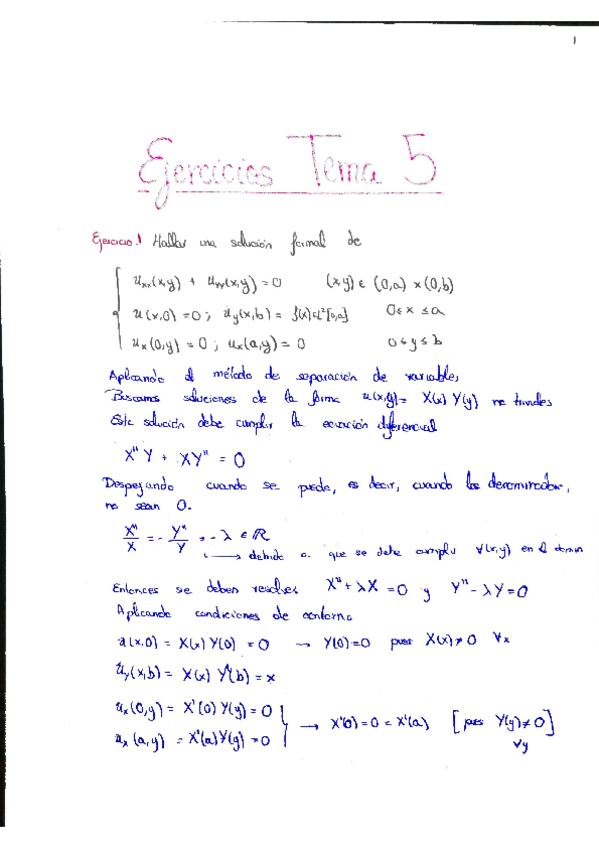 1
Ejercicios Tema 5
Ejercicio.1 Hallar una solución formal de
uxx(x,y) + uyy(x,y) = 0 (x,y) ∈ (0,a) x (0,b)
u(x,0) = 0 ; uy(x,b) = f(x) ∈ L²[0,a] 0 ≤ x ≤ a
ux(0,y) = 0 ; ux(a,y) = 0 0 ≤ y ≤ b
Aplicando el método de separación de variables,
Buscamos soluciones de la forma u(x,y) = X(x) Y(y) no triviales
Esta solución debe cumplir la ecuación diferencial
X'' Y + XY'' = 0
Despejando cuando se pueda, es decir, cuando los denominador,
no sean 0.
X''/X = - Y''/Y = -λ ∈ ℝ
→ debido a que se debe cumplir ∀(x,y) en el domin
Entonces se deben resolver X'' + λX = 0 y Y'' - λY = 0
Aplicando condiciones de contorno
u(x,0) = X(x) Y(0) = 0 → Y(0) = 0 pues X(x) ≠ 0 ∀x
uy(x,b) = X(x) Y'(b) = x
ux(0,y) = X'(0) Y(y) = 0
→ X'(0) = 0 = X'(a) [pues Y(y) ≠ 0]
∀y
ux(a,y) = X'(a) Y(y) = 0